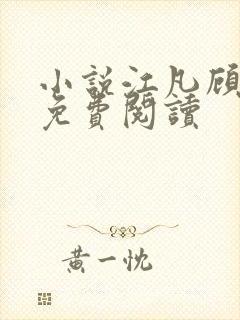 小說江凡顧
免費閱讀
黃一忱